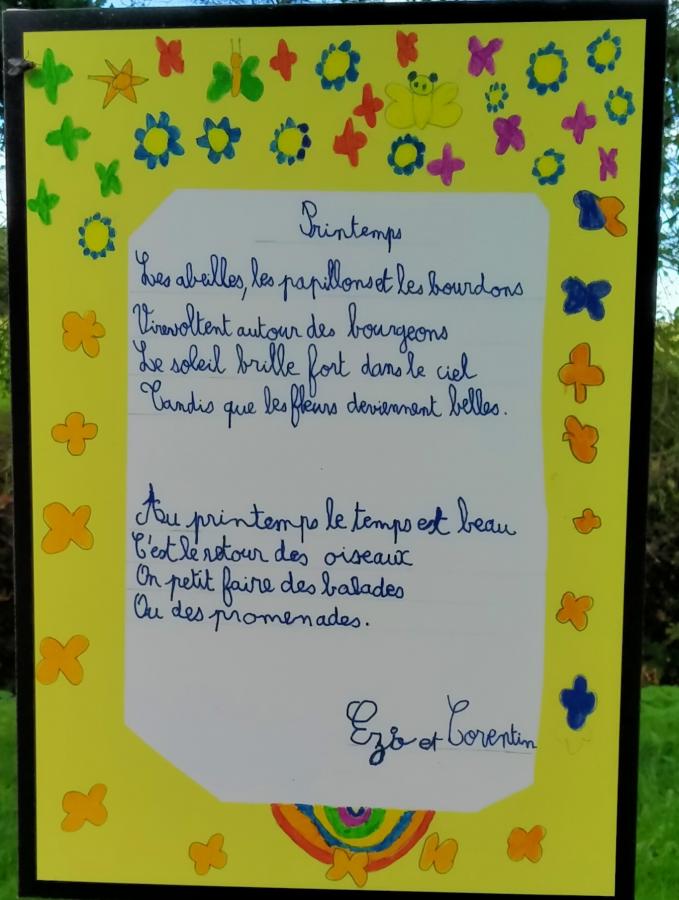 Printemps
Les abeilles, les papillons et les bourdons
Virevoltent autour des bourgeons
Le soleil brille fort dans le ciel
Tandis que les fleurs deviennent belles.
Au printemps le temps est beau
C'est le retour des oiseaux
On petit faire des balades
Ou des promenades.
et Corentin